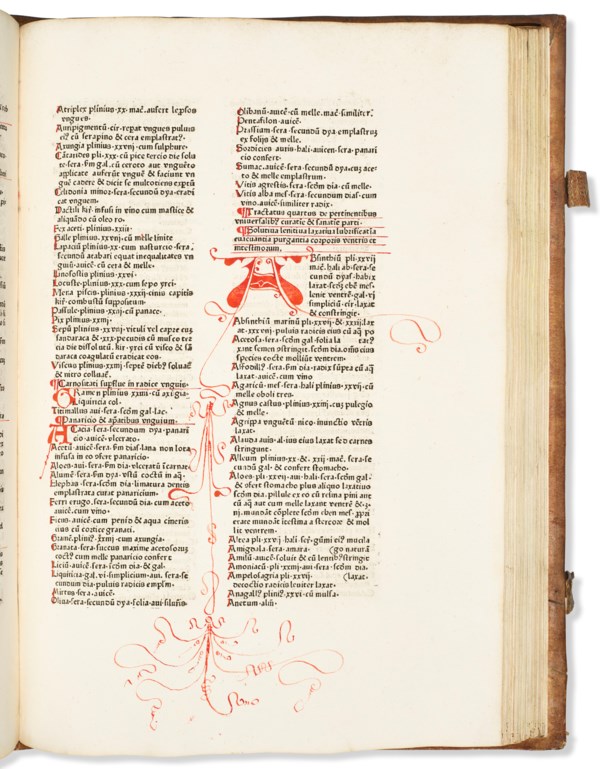 Atriplex plinius·xx·mac̄·aufert lepͦsos
vngues·
Auripigmentū·cir·repat vngues puluis
ei⁹ cū serapino & cera emplastrat⁹·
Axungia plinius·xxvnj·cum sulphure·
Cātarides pli·xxx·cū pice tercio die solu
applicate auferūt vnguē & faciunt vn
guē cadere & dicit se multociens exptū
Celidonia minor·sera·secundū dya·eradi
cat vnguem·
Dactili kir̄·infusi in vino cum mastice &
aliquātō cū oleo ro·
Fex aceti·plinius·xxiij·
Galle plinius·xxvnj·cū melle linite
Lapaciū plinius·xx·cum nasturcio·sera·
secundū azarabi equat inequalitates vn
guiū·auicē·cū cera & melle·
Linofostis plinius·xxv·
Locuste·plinius·xxx·cum sepo yrci·
Mera piscis·plinius·xxxij·ciniu capitis
kir̄·combustū suppositum·
Passule·plinius·xxnj·cum panace·
Pix plinius·xxnj·
Sepū plinius·xxvnj·vituli vel capre cuz
sandaraca &·xxx·pecudis cū museo ter
cia die dissolut⁹·kir·yrci cū visco & sā
daraca coagulatū eradicat eos·
Viscus plinius·xxnj·septē dieb⁹ soluāt
& nitro collinat̄·
Carnositati supflue in radice vnguis·
GRamen plinius xxnij·cū axūgia·
Liquiricia col·
Titimallus aui·sera·secdm gal·lac·
Panaricio & apatibus vnguium·
ACacia·sera·secundum dya·panari
cio·auicē·vlcerato·
Acetū·auicē·sera·fm dias·lana non lota
infusa in eo ofert panaricio·
Aloes·aui·sera·fm dia·vlceratū scarnat
Alumē·sera·fm dya·vstū coctū in aq̄·
Elephas·sera·secdm dia·limatura dentis
emplastrata curat panaricium·
Ferri erugo·sera·secundū dia·cum aceto
auicē·cum vino·
Ficus·auicē·cum penid & aqua cineris
eius cū cortice granati·
Granē·plini⁹·xxnj·cum axungia·
Granata·sera·succus maxime acetosorum
coct⁹ cum melle panaricio confert
Liciū·auicē·sera·secdm dia·& gal·
Liquiritia·gal·vi simplicium·aui·sera·se
cundum dia·puluis radicis empsm·
Mirtus·sera·auicē·
Oliua·sera·secundū dya·folia·aui·siluris
Olibanū·auicē·cū melle·mac̄·similiter·
Pentafilon·auicē·
Prassiam·sera·secundū dya·emplastruz
ex foliis & melle·
Sordicies auris·hali·auicen·sera·panari
cio confert·
Sumac·auicē·sera·secundū dya·cuz ace
to & melle emplastrum·
Vitis agrestis·sera·secdm dia·cū melle·
Vitis alba mec·sera·secundum dias·cum
vino·auicē·similiter radix·
Tractatus quartus de pertinentibus
vniuersalib⁹ curatiē & sanatiē parti·
Solutiua lenitiua laxatiua lubrificatiua
euacuantia purgantia corporis ventris et
intestinorum·
ABsinthiū pli·xxvij
mac̄·hali ab·sera·se
cundū dya·habix
laxat·secdm ebē mes·
lenit ventrē·gal·vj
simpliciū·cir·laxat
& constringit·
Absinthiū marinū pli·xxvij·&·xxxij·lax
at·xxvij·puluis radicis eius cū aq̄ po
Acetosa·sera·secdm gal·folia la tat⁹
xant semen ostringit·secdm dia·oms eius
species cocte molliūt ventrem·
Affodill⁹·sera·fm dia·radix supra cū aq̄
laxat·auicē·cum vino
Agaricū·mes·sera·hali plinius·xxvij·cū
melle oboli tres·
Agnus castus·plinius·xxnij·cuz pulegio
& melle·
Agrippa vnguētū nico·inunctio vētris
laxat·
Alauda auis·al·ius eius laxat sed carnes
stringunt·
Alleum plinius·xx·&·xxij·mac̄·sera·se
cundū gal·& confert stomacho·
Aloes·pli·xxvij·aui·hali·sera·secdm gal·
& ofert stomacho plus aliquo laxatiuo
secdm dia·pillule ex eo cū resina pini aut
cū aq̄ aut cum melle laxant ventrē &·
nj·mundāt cōplete
erate mundāt itestina a stercore & mol
lit ventrem·
Altea pli·xxvij·hali
Amigdala·sera·amara· (go natura
Amilū·auicē·soluit & cū lenib⁹ stringit
Amoniacū pli·xxnij·aui·sera·secdm dia·
Ampelosagria pli·xxvij· (laxat·
decoctio radicis leuiter laxat·
Anagall⁹ plini⁹·xxvi·cū mulsa·
Anetum·alij·